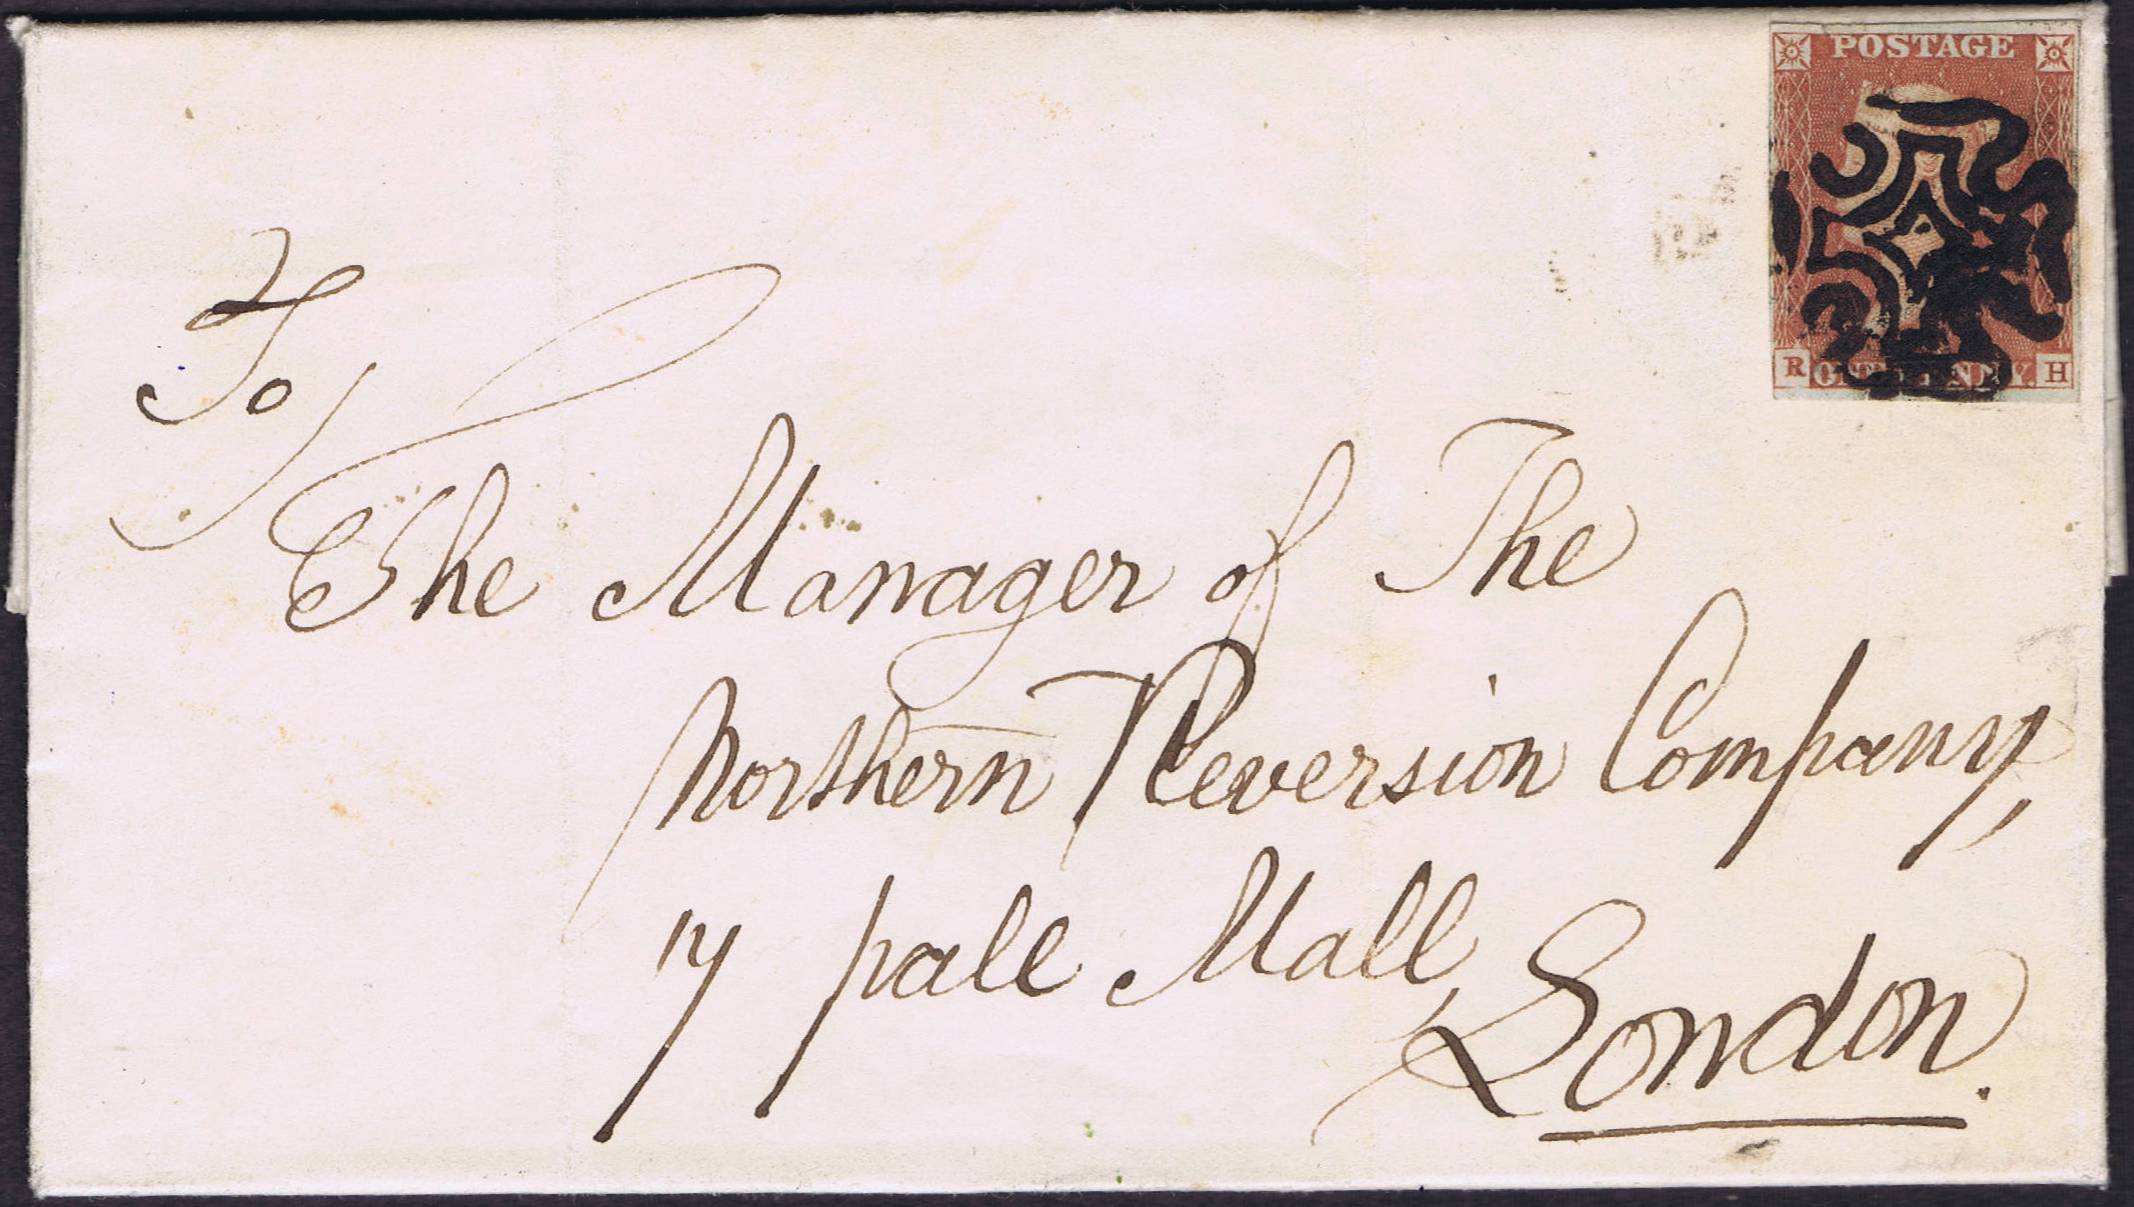 POSTAGE
R ONE PENNY. H
To
The Manager of The
Northern Reversion Company,
17 pall Mall,
London.